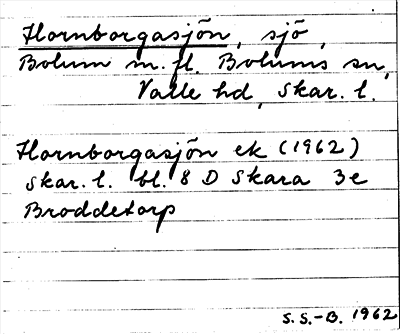 Hornborgasjön, sjö,
Bolum m.fl. Bolums sn,
Valle hd, Skar. l.
Hornborgasjön ek (1962)
Skar. l. bl. 8 D Skara 3e
Broddetorp
S.S.-B. 1962